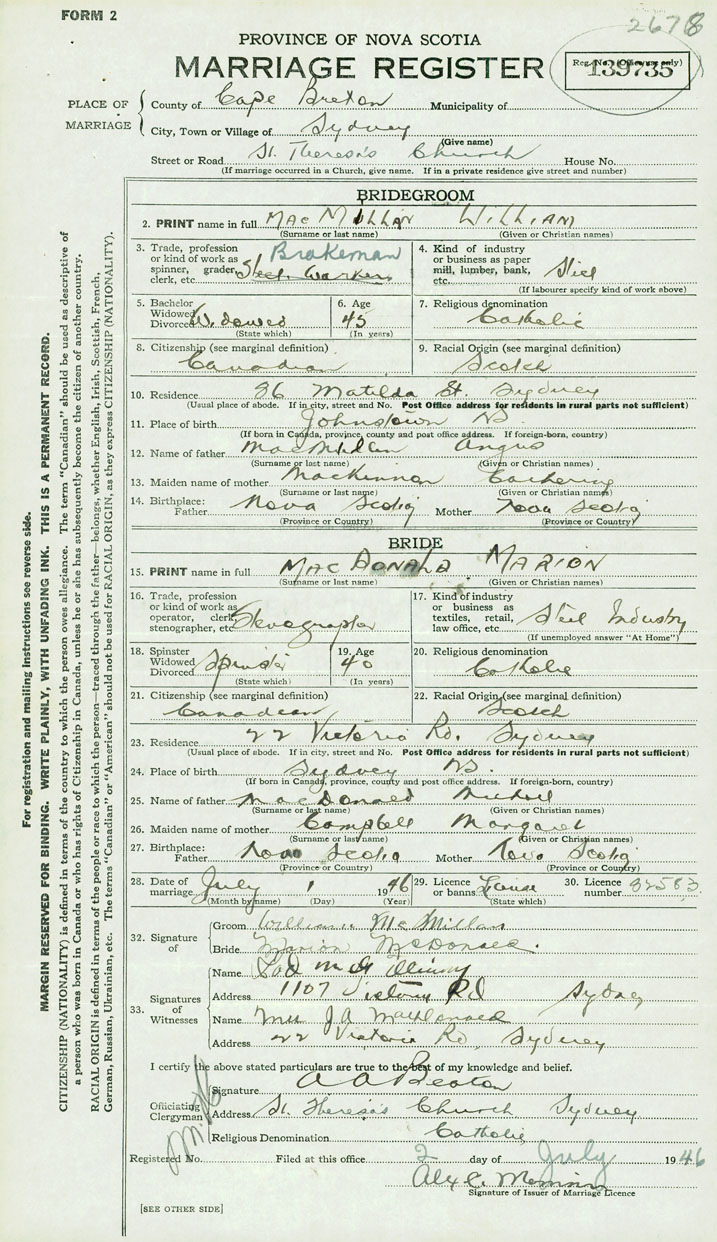 FORM 2
2678
PROVINCE OF NOVA SCOTIA
MARRIAGE REGISTER
Reg. No. (Office use only)
139735
PLACE OF MARRIAGE
County of Cape Breton Municipality of
City, Town or Village of Sydney
(Give name)
Street or Road St. Theresa's Church House No.
(If marriage occurred in a Church, give name. If in a private residence give street and number)
BRIDEGROOM
2. PRINT name in full MacMillan William
(Surname or last name) (Given or Christian names)
3. Trade, profession or kind of work as spinner, grader, clerk, etc. Brakeman Steel Worker
4. Kind of industry or business as paper mill, lumber, bank, etc. Steel
(If labourer specify kind of work above)
5. Bachelor Widowed Divorced Widowed
(State which)
6. Age 45
(In years)
7. Religious denomination Catholic
8. Citizenship (see marginal definition) Canadian
9. Racial Origin (see marginal definition) Scotch
10. Residence 36 Matilda St. Sydney
(Usual place of abode. If in city, street and No. Post Office address for residents in rural parts not sufficient)
11. Place of birth Johnstown NS
(If born in Canada, province, county and post office address. If foreign-born, country)
12. Name of father MacMillan Angus
(Surname or last name) (Given or Christian names)
13. Maiden name of mother MacKinnon Catherine
(Surname or last name) (Given or Christian names)
14. Birthplace: Father Nova Scotia Mother Nova Scotia
(Province or Country) (Province or Country)
BRIDE
15. PRINT name in full MacDonald Marion
(Surname or last name) (Given or Christian names)
16. Trade, profession or kind of work as operator, clerk, stenographer, etc. Stenographer
17. Kind of industry or business as textiles, retail, law office, etc. Steel Industry
(If unemployed answer "At Home")
18. Spinster Widowed Divorced Spinster
(State which)
19. Age 40
(In years)
20. Religious denomination Catholic
21. Citizenship (see marginal definition) Canadian
22. Racial Origin (see marginal definition) Scotch
23. Residence 22 Victoria Rd. Sydney
(Usual place of abode. If in city, street and No. Post Office address for residents in rural parts not sufficient)
24. Place of birth Sydney NS.
(If born in Canada, province, county and post office address. If foreign-born, country)
25. Name of father MacDonald Michael
(Surname or last name) (Given or Christian names)
26. Maiden name of mother Campbell Margaret
(Surname or last name) (Given or Christian names)
27. Birthplace: Father Nova Scotia Mother Nova Scotia
(Province or Country) (Province or Country)
28. Date of marriage July 1 1946
(Month by name) (Day) (Year)
29. Licence or banns License
(State which)
30. Licence number 32583
32. Signature of
Groom William McMillan
Bride Marion McDonald.
33. Signatures of Witnesses
Name
Address 1107 Victoria Rd Sydney
Name Mrs J A MacDonald
Address 22 Victoria Rd, Sydney
I certify the above stated particulars are true to the best of my knowledge and belief.
Officiating Clergyman
Signature A A Beaton
Address St. Theresa's Church Sydney
Religious Denomination Catholic
Registered No. Filed at this office 2 day of July 1946
Alex C.
Signature of Issuer of Marriage Licence
[SEE OTHER SIDE]
For registration and mailing instructions see reverse side.
MARGIN RESERVED FOR BINDING. WRITE PLAINLY, WITH UNFADING INK. THIS IS A PERMANENT RECORD.
CITIZENSHIP (NATIONALITY) is defined in terms of the country to which the person owes allegiance. The term "Canadian" should be used as descriptive of
a person who was born in Canada or who has rights of Citizenship in Canada, unless he or she has subsequently become the citizen of another country.
RACIAL ORIGIN is defined in terms of the people or race to which the person—traced through the father—belongs, whether English, Irish, Scottish, French,
German, Russian, Ukrainian, etc. The terms "Canadian" or "American" should not be used for RACIAL ORIGIN, as they express CITIZENSHIP (NATIONALITY).